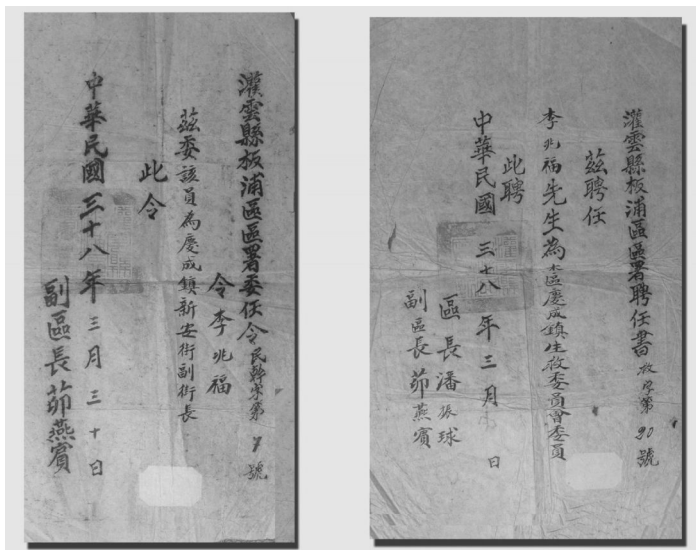 灌雲縣板浦區區署委任令 民幹字第 7 號
令李兆福
茲委該員為慶成鎮新安街副街長
此令
中華民國三十八年三月三十日
副區長 茆燕賓
灌雲縣板浦區區署聘任書 救字第 90 號
茲聘任
李兆福先生為本區慶成鎮生救委員會委員
此聘
中華民國 三十八 年 三 月 日
區長 潘振球
副區長 茆燕賓